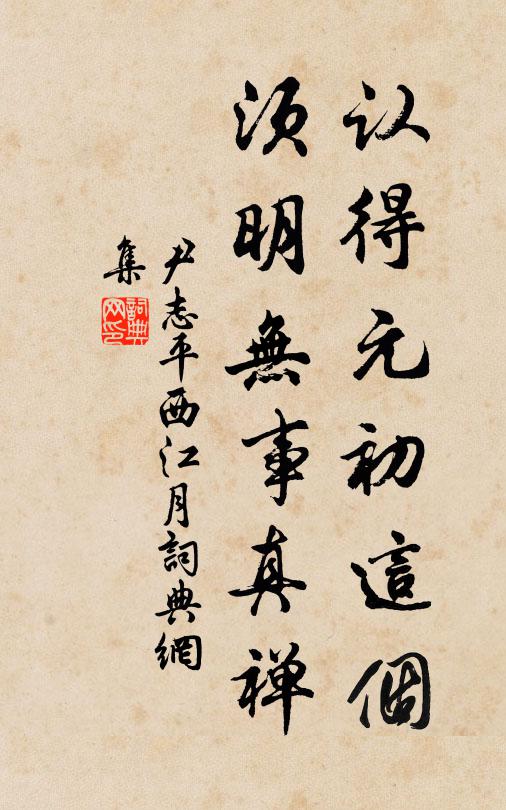 认得元初這個
须明無事真禅
尹志平西江月詞典網
集
詞典网印